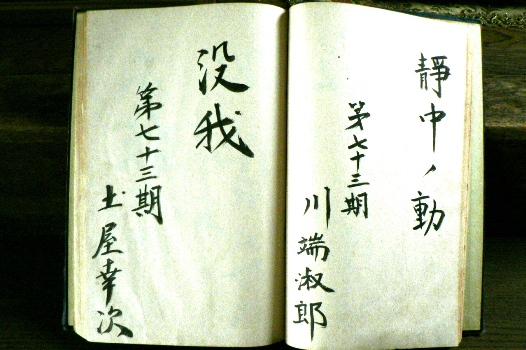 靜中ノ動
第七十三期
川端淑郎
没我
第七十三期
土屋幸次